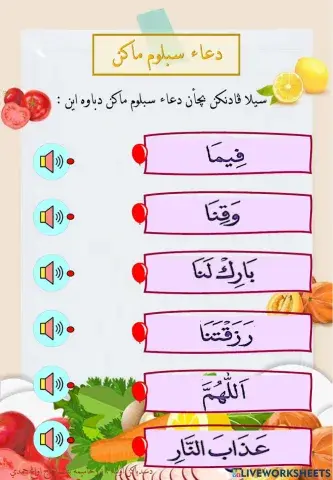 دعاء سبلوم ماكن
سيلا ڤادنكن بچاءن دعاء سبلوم ماكن دباوه اين :
فِيمَا
وَقِنَا
بَارِكْ لَنَا
رَزَقْتَنَا
اَللّٰهُمَّ
عَذَابَ النَّارِ
LIVEWORKSHEETS